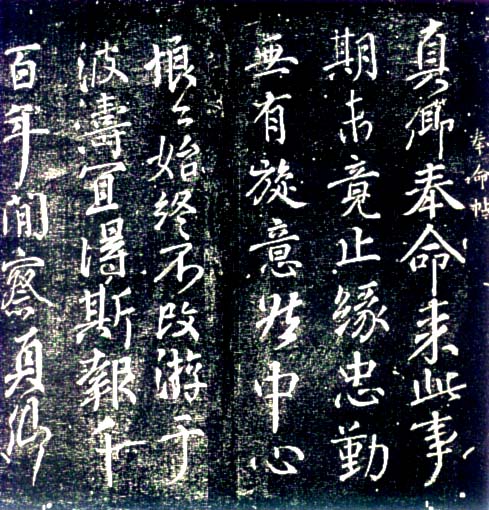 奉命帖
真卿奉命來此事
期未竟止緣忠勤
無有旋意然中心
悢々始終不改游于
波濤宜得斯報千
百年間察真卿